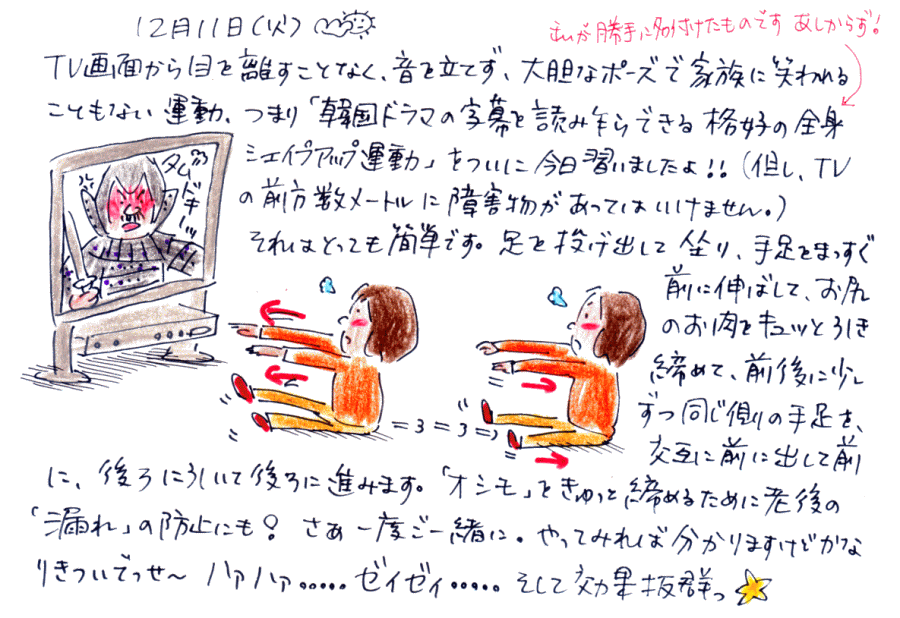 12月11日(火)
私が勝手に名付けたものです あしからず!
TV画面から目を離すことなく、音を立てず、大胆なポーズで家族に笑われる
こともない運動、つまり「韓国ドラマの字幕を読み乍らできる格好の全身
シェイプアップ運動」をついに今日習いましたよ!!(但し、TV
の前方数メートルに障害物があってはいけません。)
それはとっても簡単です。足を投げ出して坐り、手足をまっすぐ
前に伸ばして、お尻
のお肉をキュッと引き
締めて、前後に少し
ずつ同じ側の手足を、
交互に前に出して前
に、後ろに引いて後ろに進みます。「オシモ」をきゅっと締めるために老後の
「漏れ」の防止にも♀ さぁ一度ご一緒に。やってみれば分かりますけどかな
りきついでっせ〜 ハァハァ・・・・・ゼイゼイ・・・・・そして効果抜群っ